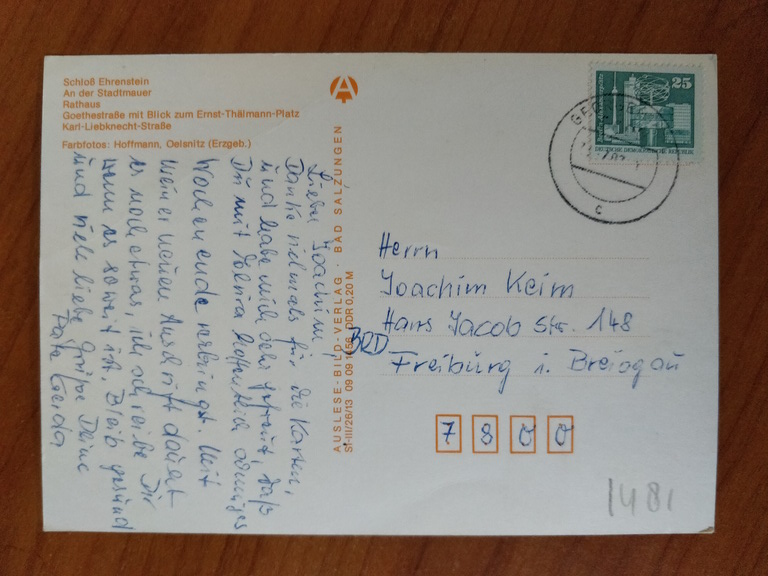 Schloß Ehrenstein
An der Stadtmauer
Rathaus
Goethestraße mit Blick zum Ernst-Thälmann-Platz
Karl-Liebknecht-Straße
Farbfotos: Hoffmann, Oelsnitz (Erzgeb.)
Lieber Joachim
Danke vielmals für die Karten,
und habe mich sehr gefreut, daß
Du mit Deiner
Wochenende verbringst. Mit
meiner neuen Anschrift dauert
es noch etwas, ich schreibe Dir
wenn es soweit ist. Bleib gesund
und viele liebe Grüße Deine
Gerda
AUSLESE-BILD-VERLAG · BAD SALZUNGEN
St-III/26/13 09 09 DDR 0,20 M
A
25
DEUTSCHE DEMOKRATISCHE REPUBLIK
c
Herrn
Joachim Keim
Hans Jacob Str. 148
BRD
Freiburg i. Breisgau
7800
1481